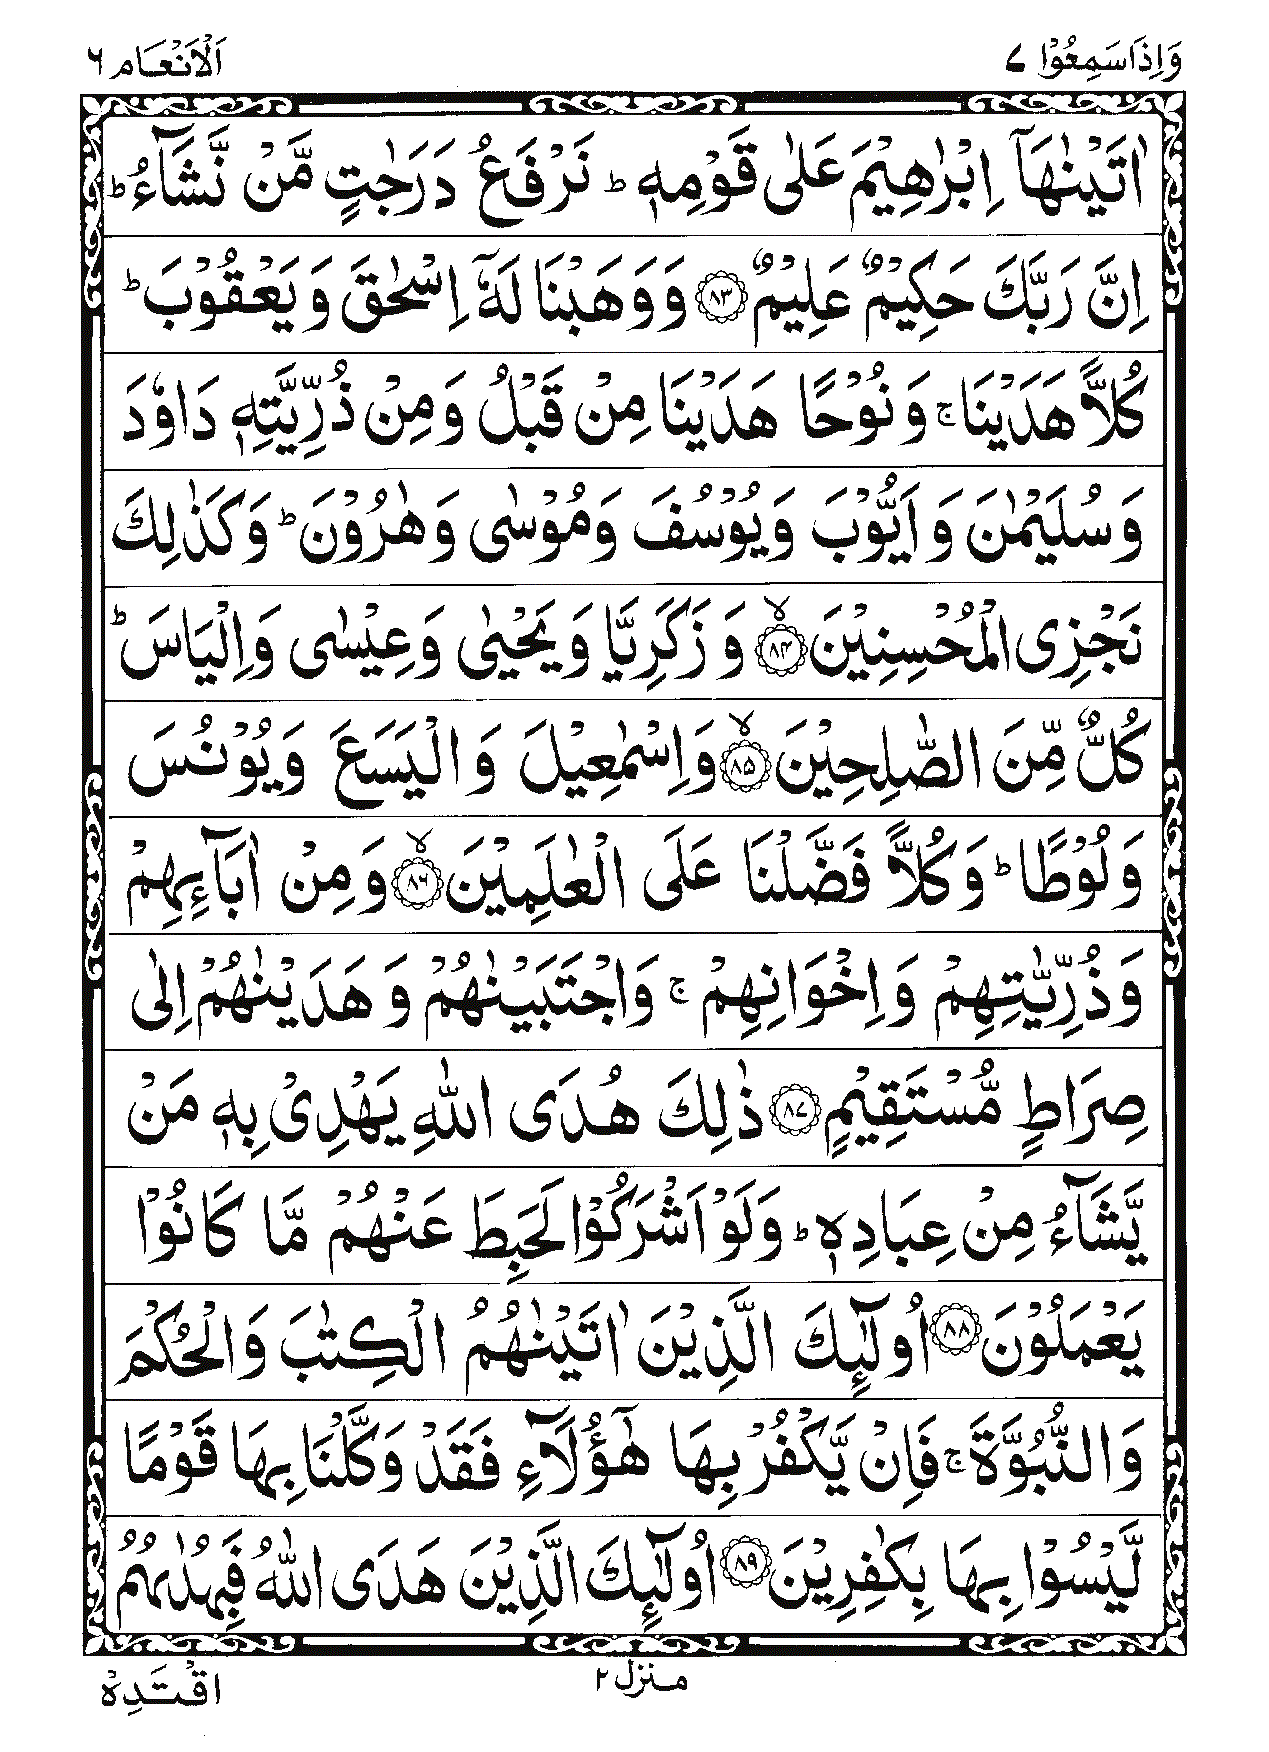 وَاِذَاسَمِعُوْا ٧
اَلْاَنْعَام ٦
اٰتَيْنٰهَاۤ اِبْرٰهِيْمَ عَلٰى قَوْمِهٖ ؕ نَرْفَعُ دَرَجٰتٍ مَّنْ نَّشَآءُ ؕ
اِنَّ رَبَّكَ حَكِيْمٌ عَلِيْمٌ ﴿٨٣﴾ وَوَهَبْنَا لَهٗۤ اِسْحٰقَ وَ يَعْقُوْبَ ؕ
كُلًّا هَدَيْنَا ۚ وَ نُوْحًا هَدَيْنَا مِنْ قَبْلُ وَ مِنْ ذُرِّيَّتِهٖ دَاوٗدَ
وَ سُلَيْمٰنَ وَ اَيُّوْبَ وَ يُوْسُفَ وَ مُوْسٰى وَ هٰرُوْنَ ؕ وَ كَذٰلِكَ
نَجْزِى الْمُحْسِنِيْنَ ﴿٨٤﴾ ۙ وَ زَكَرِيَّا وَ يَحْيٰى وَ عِيْسٰى وَ اِلْيَاسَ ؕ
كُلٌّ مِّنَ الصّٰلِحِيْنَ ﴿٨٥﴾ ۙ وَ اِسْمٰعِيْلَ وَ الْيَسَعَ وَ يُوْنُسَ
وَ لُوْطًا ؕ وَ كُلًّا فَضَّلْنَا عَلَى الْعٰلَمِيْنَ ﴿٨٦﴾ ۙ وَ مِنْ اٰبَآئِهِمْ
وَ ذُرِّيّٰتِهِمْ وَ اِخْوَانِهِمْ ۚ وَ اجْتَبَيْنٰهُمْ وَ هَدَيْنٰهُمْ اِلٰى
صِرَاطٍ مُّسْتَقِيْمٍ ﴿٨٧﴾ ذٰلِكَ هُدَى اللّٰهِ يَهْدِىْ بِهٖ مَنْ
يَّشَآءُ مِنْ عِبَادِهٖ ؕ وَ لَوْ اَشْرَكُوْا لَحَبِطَ عَنْهُمْ مَّا كَانُوْا
يَعْمَلُوْنَ ﴿٨٨﴾ اُولٰٓئِكَ الَّذِيْنَ اٰتَيْنٰهُمُ الْكِتٰبَ وَ الْحُكْمَ
وَ النُّبُوَّةَ ۚ فَاِنْ يَّكْفُرْ بِهَا هٰۤؤُلَآءِ فَقَدْ وَكَّلْنَا بِهَا قَوْمًا
لَّيْسُوْا بِهَا بِكٰفِرِيْنَ ﴿٨٩﴾ اُولٰٓئِكَ الَّذِيْنَ هَدَى اللّٰهُ فَبِهُدٰىهُمُ
منزل ٢
اقْتَدِهْ